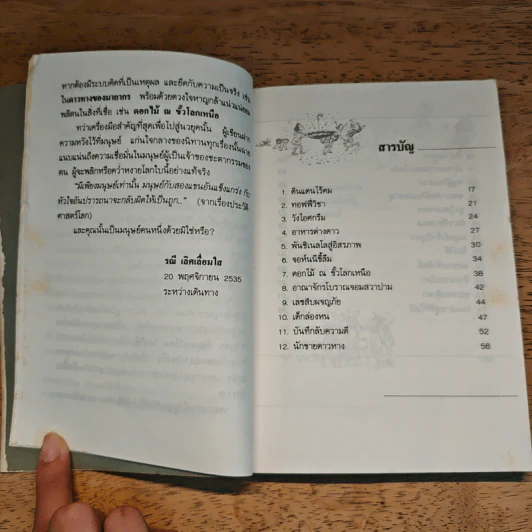 หากต้องมีระบบคิดที่เป็นเหตุผล และยึดกับความเป็นจริง เช่น
ในดาวทางของมาอากร พร้อมด้วยดวงใจหาญกล้าแน่วแน่
ผลิตนในสิ่งที่เชื่อ เช่น ดอกไม้ ณ ขั้วโลกเหนือ
ทว่าเครื่องมือสำคัญที่สุดเพื่อไปสู่นวยุคนั้น ผู้เขียนฝาก
ความหวังไว้ที่มนุษย์ แก่นใจกลางของนิทานทุกเรื่องนั้น
แนบแน่นถึงความเชื่อมั่นในมนุษย์ผู้เป็นเจ้าของชะตากรรมของ
ตน ผู้จะพลิกหรือคว่ำหงายโลกใบนี้อย่างแท้จริง
"มีเพียงมนุษย์เท่านั้น มนุษย์กับสองแขนอันแข็งแกร่ง กับ
หัวใจอันปรารถนาจะกลับผิดให้เป็นถูก.." (จากเรื่องประวัติ-
ศาสตร์โลก)
และคุณนั้นเป็นมนุษย์คนหนึ่งด้วยมิใช่หรือ?
รณี เลิศเลื่อมใส
20 พฤศจิกายน 2535
ระหว่างเดินทาง
สารบัญ
1. ดินแดนไร้คม 17
2. ทอฟฟี่วิชา 21
3. วังไอศกรีม 24
4. อาหารต่างดาว 27
5. พันชิเนลโลสู่อิสรภาพ 30
6. จอห์นนี่ขี้ลืม 34
7. ดอกไม้ ณ ขั้วโลกเหนือ 38
8. อาณาจักรโบราณจอมสวาปาม 42
9. เลขสิบผจญภัย 44
10. เด็กล่องหน 47
11. บันทึกลับความดี 52
12. นักขายดาวหาง 56